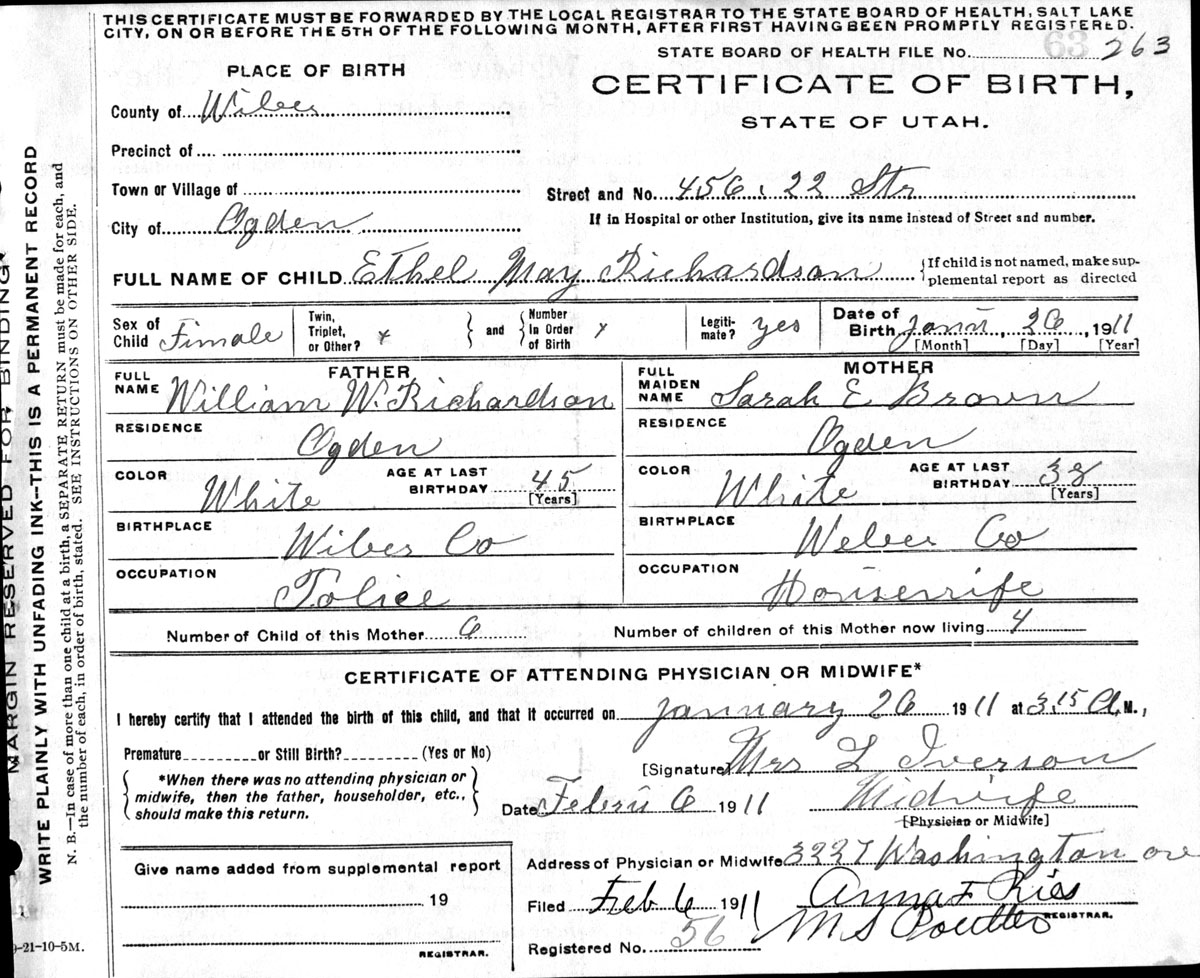 THIS CERTIFICATE MUST BE FORWARDED BY THE LOCAL REGISTRAR TO THE STATE BOARD OF HEALTH, SALT LAKE
CITY, ON OR BEFORE THE 5TH OF THE FOLLOWING MONTH, AFTER FIRST HAVING BEEN PROMPTLY REGISTERED.
STATE BOARD OF HEALTH FILE No. 63 263
PLACE OF BIRTH
CERTIFICATE OF BIRTH,
STATE OF UTAH.
County of Wiber
Precinct of
Town or Village of
Street and No. 456. 22 Str
City of Ogden
If in Hospital or other Institution, give its name instead of Street and number.
FULL NAME OF CHILD Ethel May Richardson
{If child is not named, make sup-
plemental report as directed
Sex of Child Fimale
Twin, Triplet, or Other? x
} and { Number In Order of Birth x
Legiti-mate? yes
Date of Birth Janu, 26, 1911
[Month] [Day] [Year]
FATHER
FULL NAME William W. Richardson
RESIDENCE
Ogden
COLOR White
AGE AT LAST BIRTHDAY 45 [Years]
BIRTHPLACE
Wiber Co
OCCUPATION
Police
MOTHER
FULL MAIDEN NAME Sarah E Brown
RESIDENCE
Ogden
COLOR White
AGE AT LAST BIRTHDAY 38 [Years]
BIRTHPLACE
Weber Co
OCCUPATION
Housewife
Number of Child of this Mother 6
Number of children of this Mother now living 4
CERTIFICATE OF ATTENDING PHYSICIAN OR MIDWIFE*
I hereby certify that I attended the birth of this child, and that it occurred on January 26 1911 at 3.15 A.M.,
Premature or Still Birth? (Yes or No)
{*When there was no attending physician or
midwife, then the father, householder, etc.,
should make this return.}
[Signature] Mrs L Iverson
Date Febru 6 1911 Midwife
[Physician or Midwife]
Give name added from supplemental report
19
REGISTRAR.
Address of Physician or Midwife 3227 Washington ave
Filed Feb 6 1911 Anna F Ries
REGISTRAR.
Registered No. 56
M S
MARGIN RESERVED FOR BINDING
WRITE PLAINLY WITH UNFADING INK—THIS IS A PERMANENT RECORD
N. B.—In case of more than one child at a birth, a SEPARATE RETURN must be made for each, and
the number of each, in order of birth, stated. SEE INSTRUCTIONS ON OTHER SIDE.
-21-10-5M.